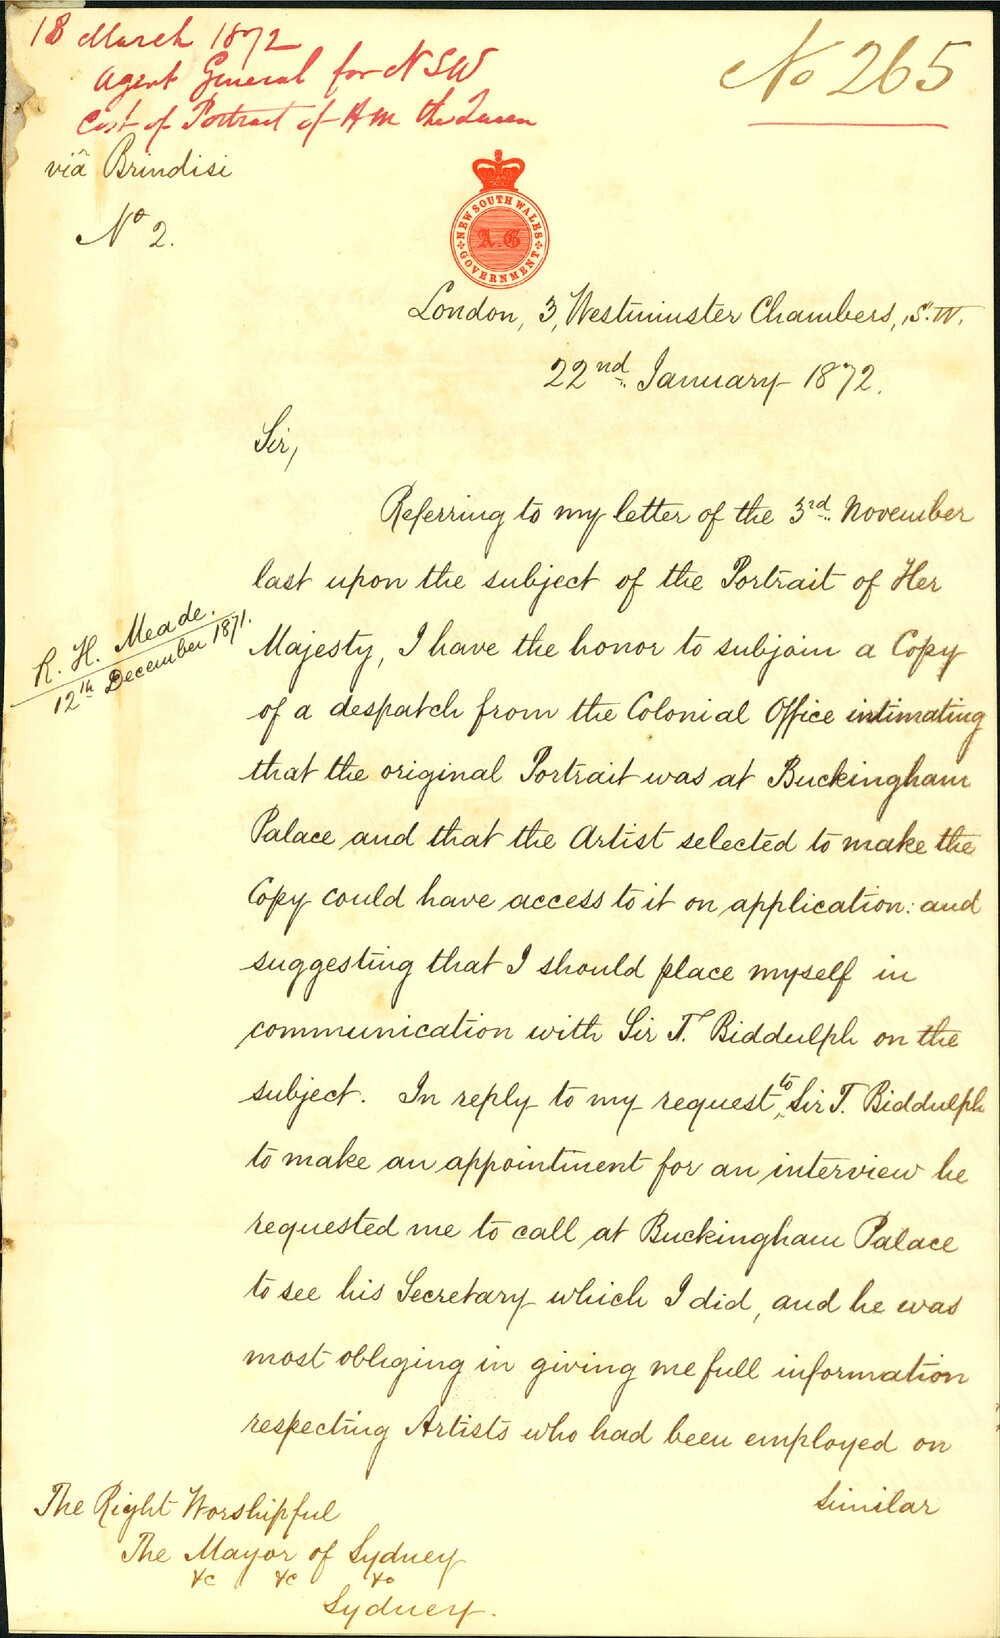 18 March 1872
Agent General for NSW
Cost of Portrait of HM the Queen
No 265
viâ Brindisi
No 2.
NEW SOUTH WALES
A.G
GOVERNMENT
London, 3, Westminster Chambers, S.W.
22nd January 1872.
Sir,
Referring to my letter of the 3rd November
last upon the subject of the Portrait of Her
Majesty, I have the honor to subjoin a Copy
R. H. Meade.
12th December 1871.
of a despatch from the Colonial Office intimating
that the original Portrait was at Buckingham
Palace and that the Artist selected to make the
Copy could have access to it on application: and
suggesting that I should place myself in
communication with Sir T. Biddulph on the
subject. In reply to my request to Sir T. Biddulph
to make an appointment for an interview he
requested me to call at Buckingham Palace
to see his Secretary which I did, and he was
most obliging in giving me full information
respecting Artists who had been employed on
similar
The Right Worshipful
The Mayor of Sydney
&c &c &c
Sydney.